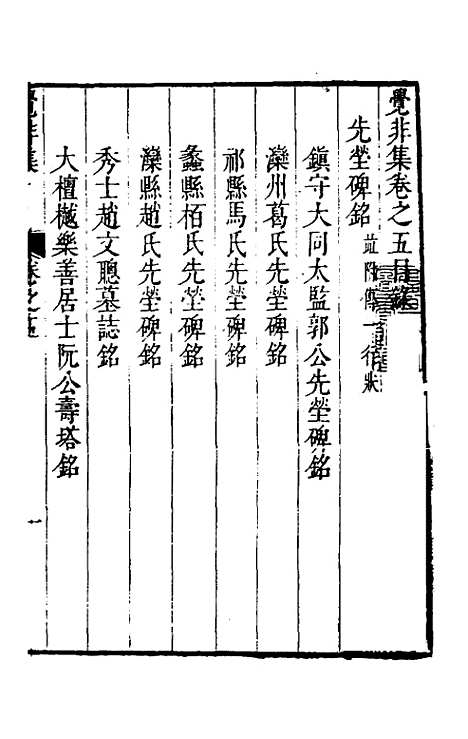 覺非集卷之五目錄
先塋碑銘 並附傳一行狀
鎭守大同太監郭公先塋碑銘
灤州葛氏先塋碑銘
祁縣馬氏先塋碑銘
蠡縣栢氏先塋碑銘
灤縣趙氏先塋碑銘
秀士趙文聰墓誌銘
大檀樾樂善居士阮公壽塔銘
覺非集 卷之五 一